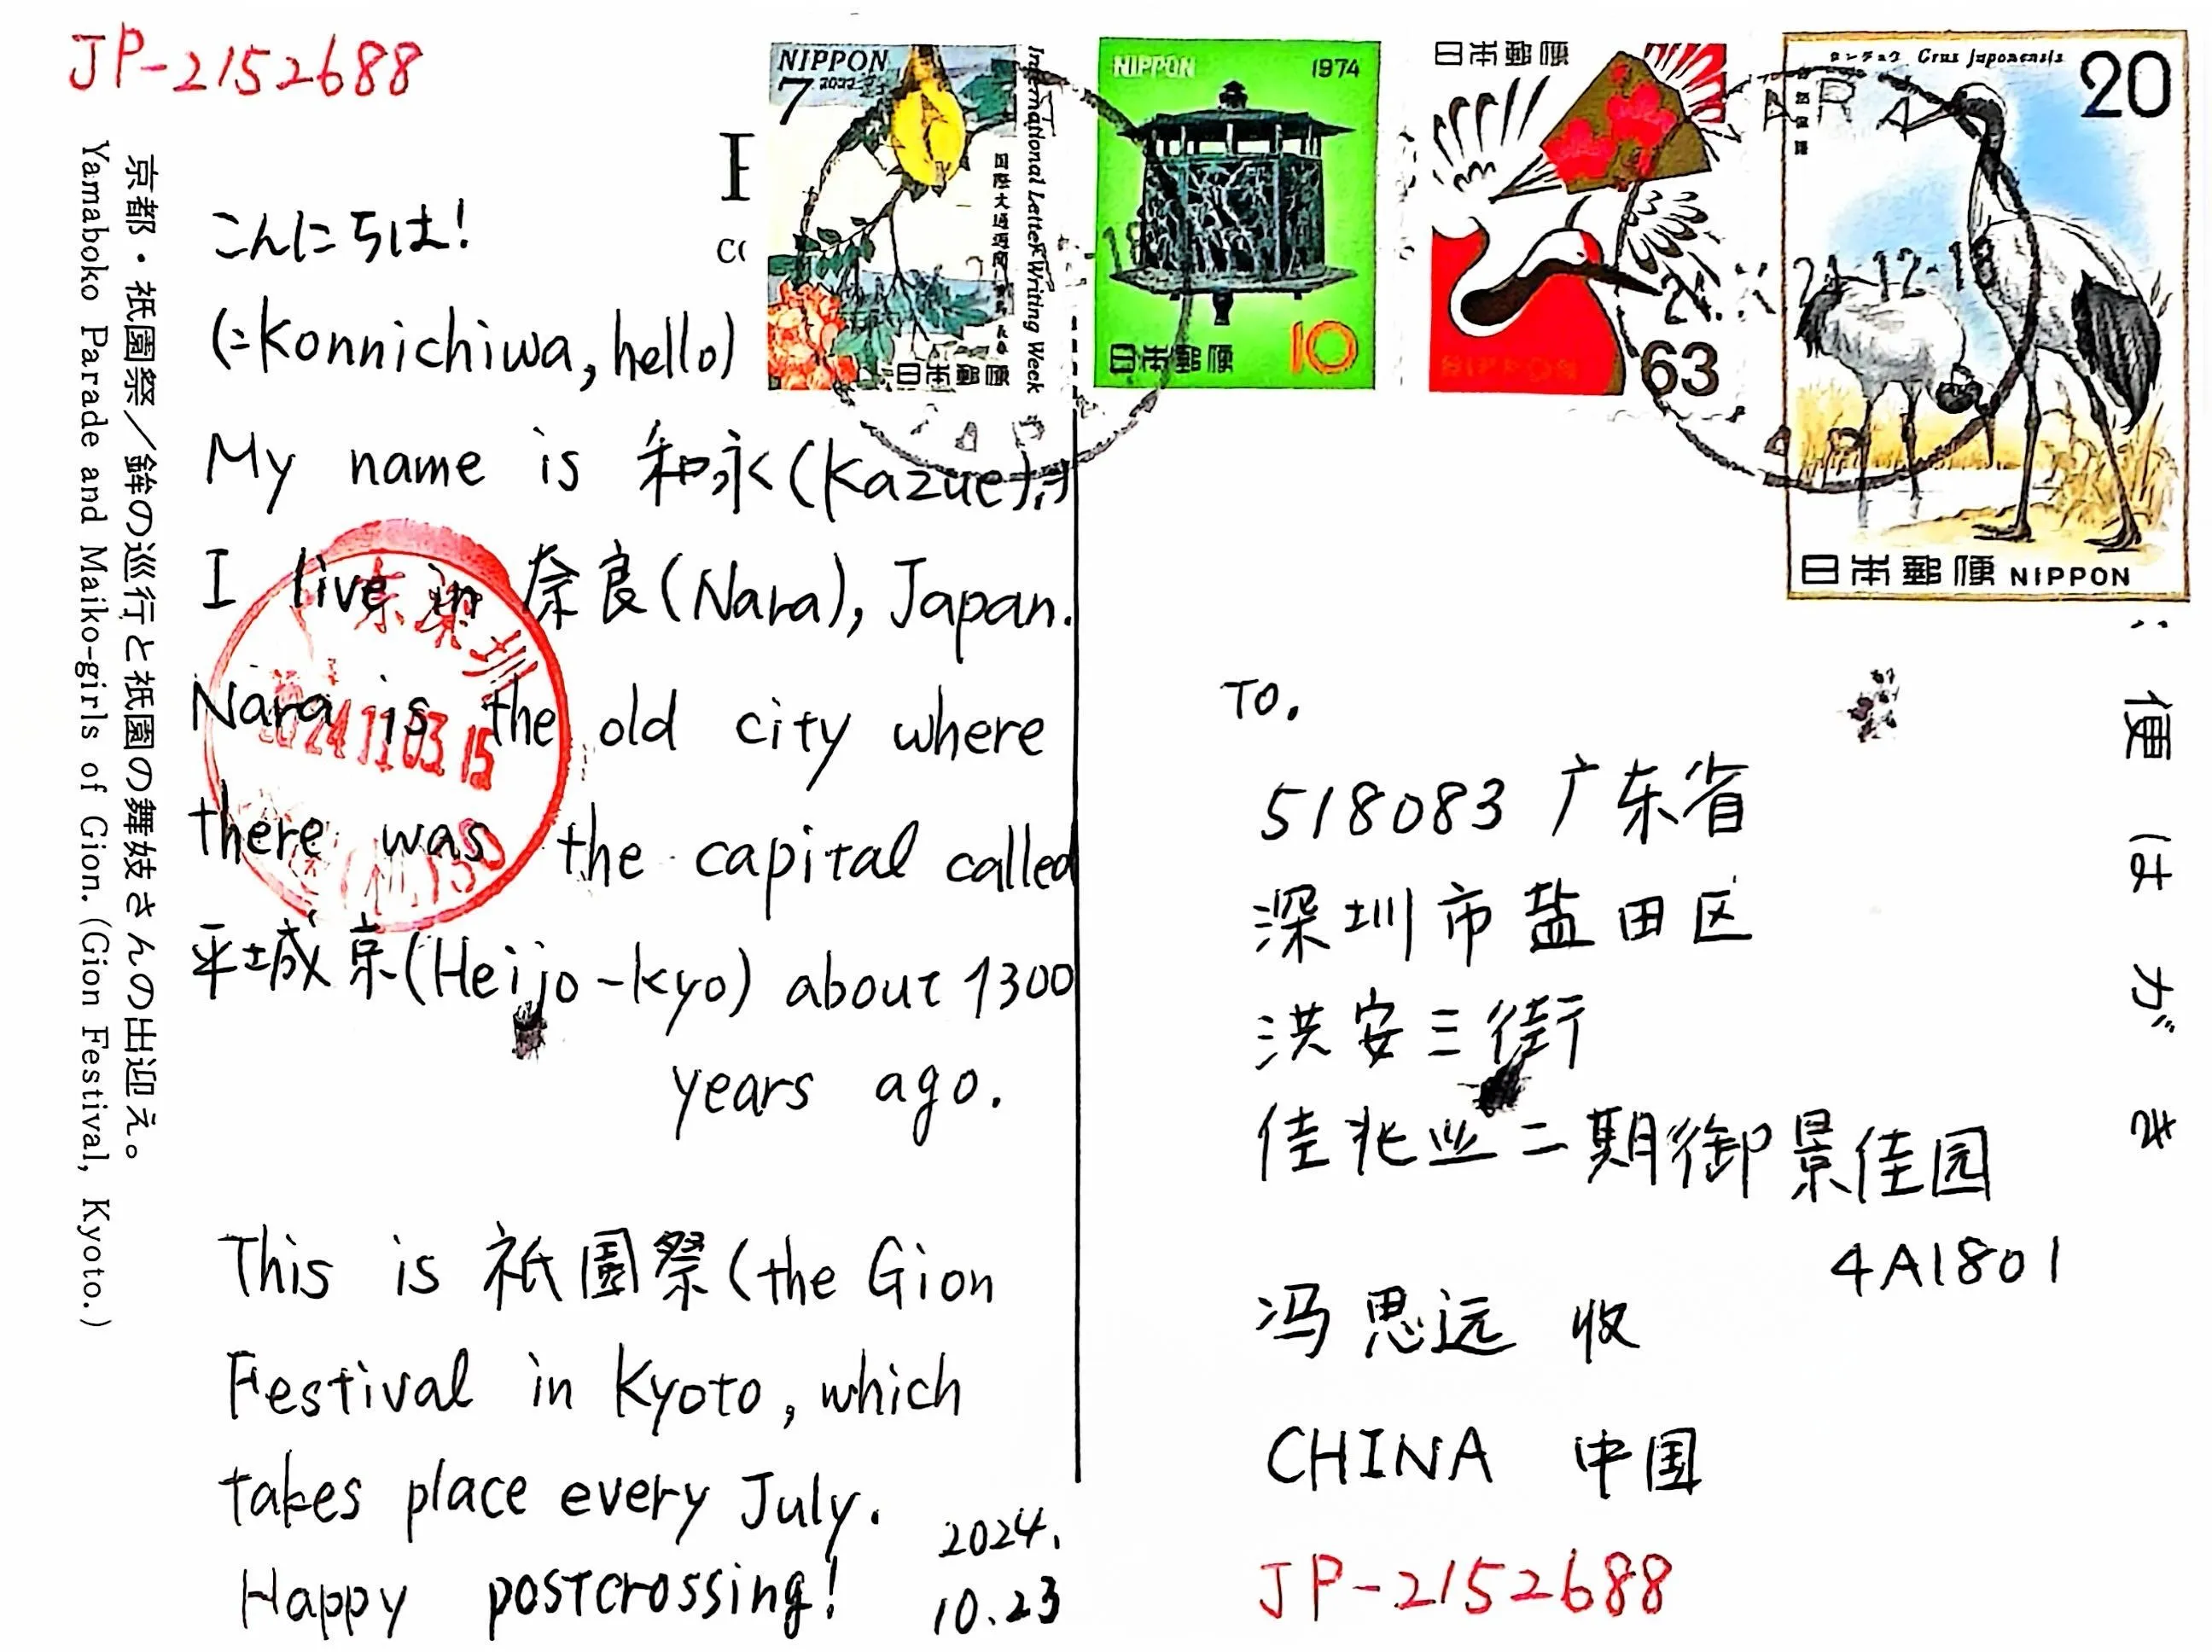 JP-2152688
京都・祇園祭／鉾の巡行と祇園の舞妓さんの出迎え。
Yamaboko Parade and Maiko-girls of Gion. (Gion Festival, Kyoto.)
こんにちは!
(=Konnichiwa, hello)
My name is 和永(Kazue).
I live in 奈良(Nara), Japan.
Nara is the old city where
there was the capital called
平城京(Heijo-kyo) about 1300
years ago.
This is 祇園祭(the Gion
Festival in Kyoto, which
takes place every July.
Happy postcrossing!
2024.
10.23
NIPPON
7
2022
International Letter Writing Week
国際文通週間
日本郵便
NIPPON
1974
日本郵便
10
日本郵便
NIPPON
63
タンチョウ Grus japonensis
20
日本郵便 NIPPON
NARA
21.X
24.12-18
JAPAN
2024.11.03.15
便はがき
TO.
518083 广东省
深圳市盐田区
洪安三街
佳兆业二期御景佳园
4A1801
冯思远 收
CHINA 中国
JP-2152688